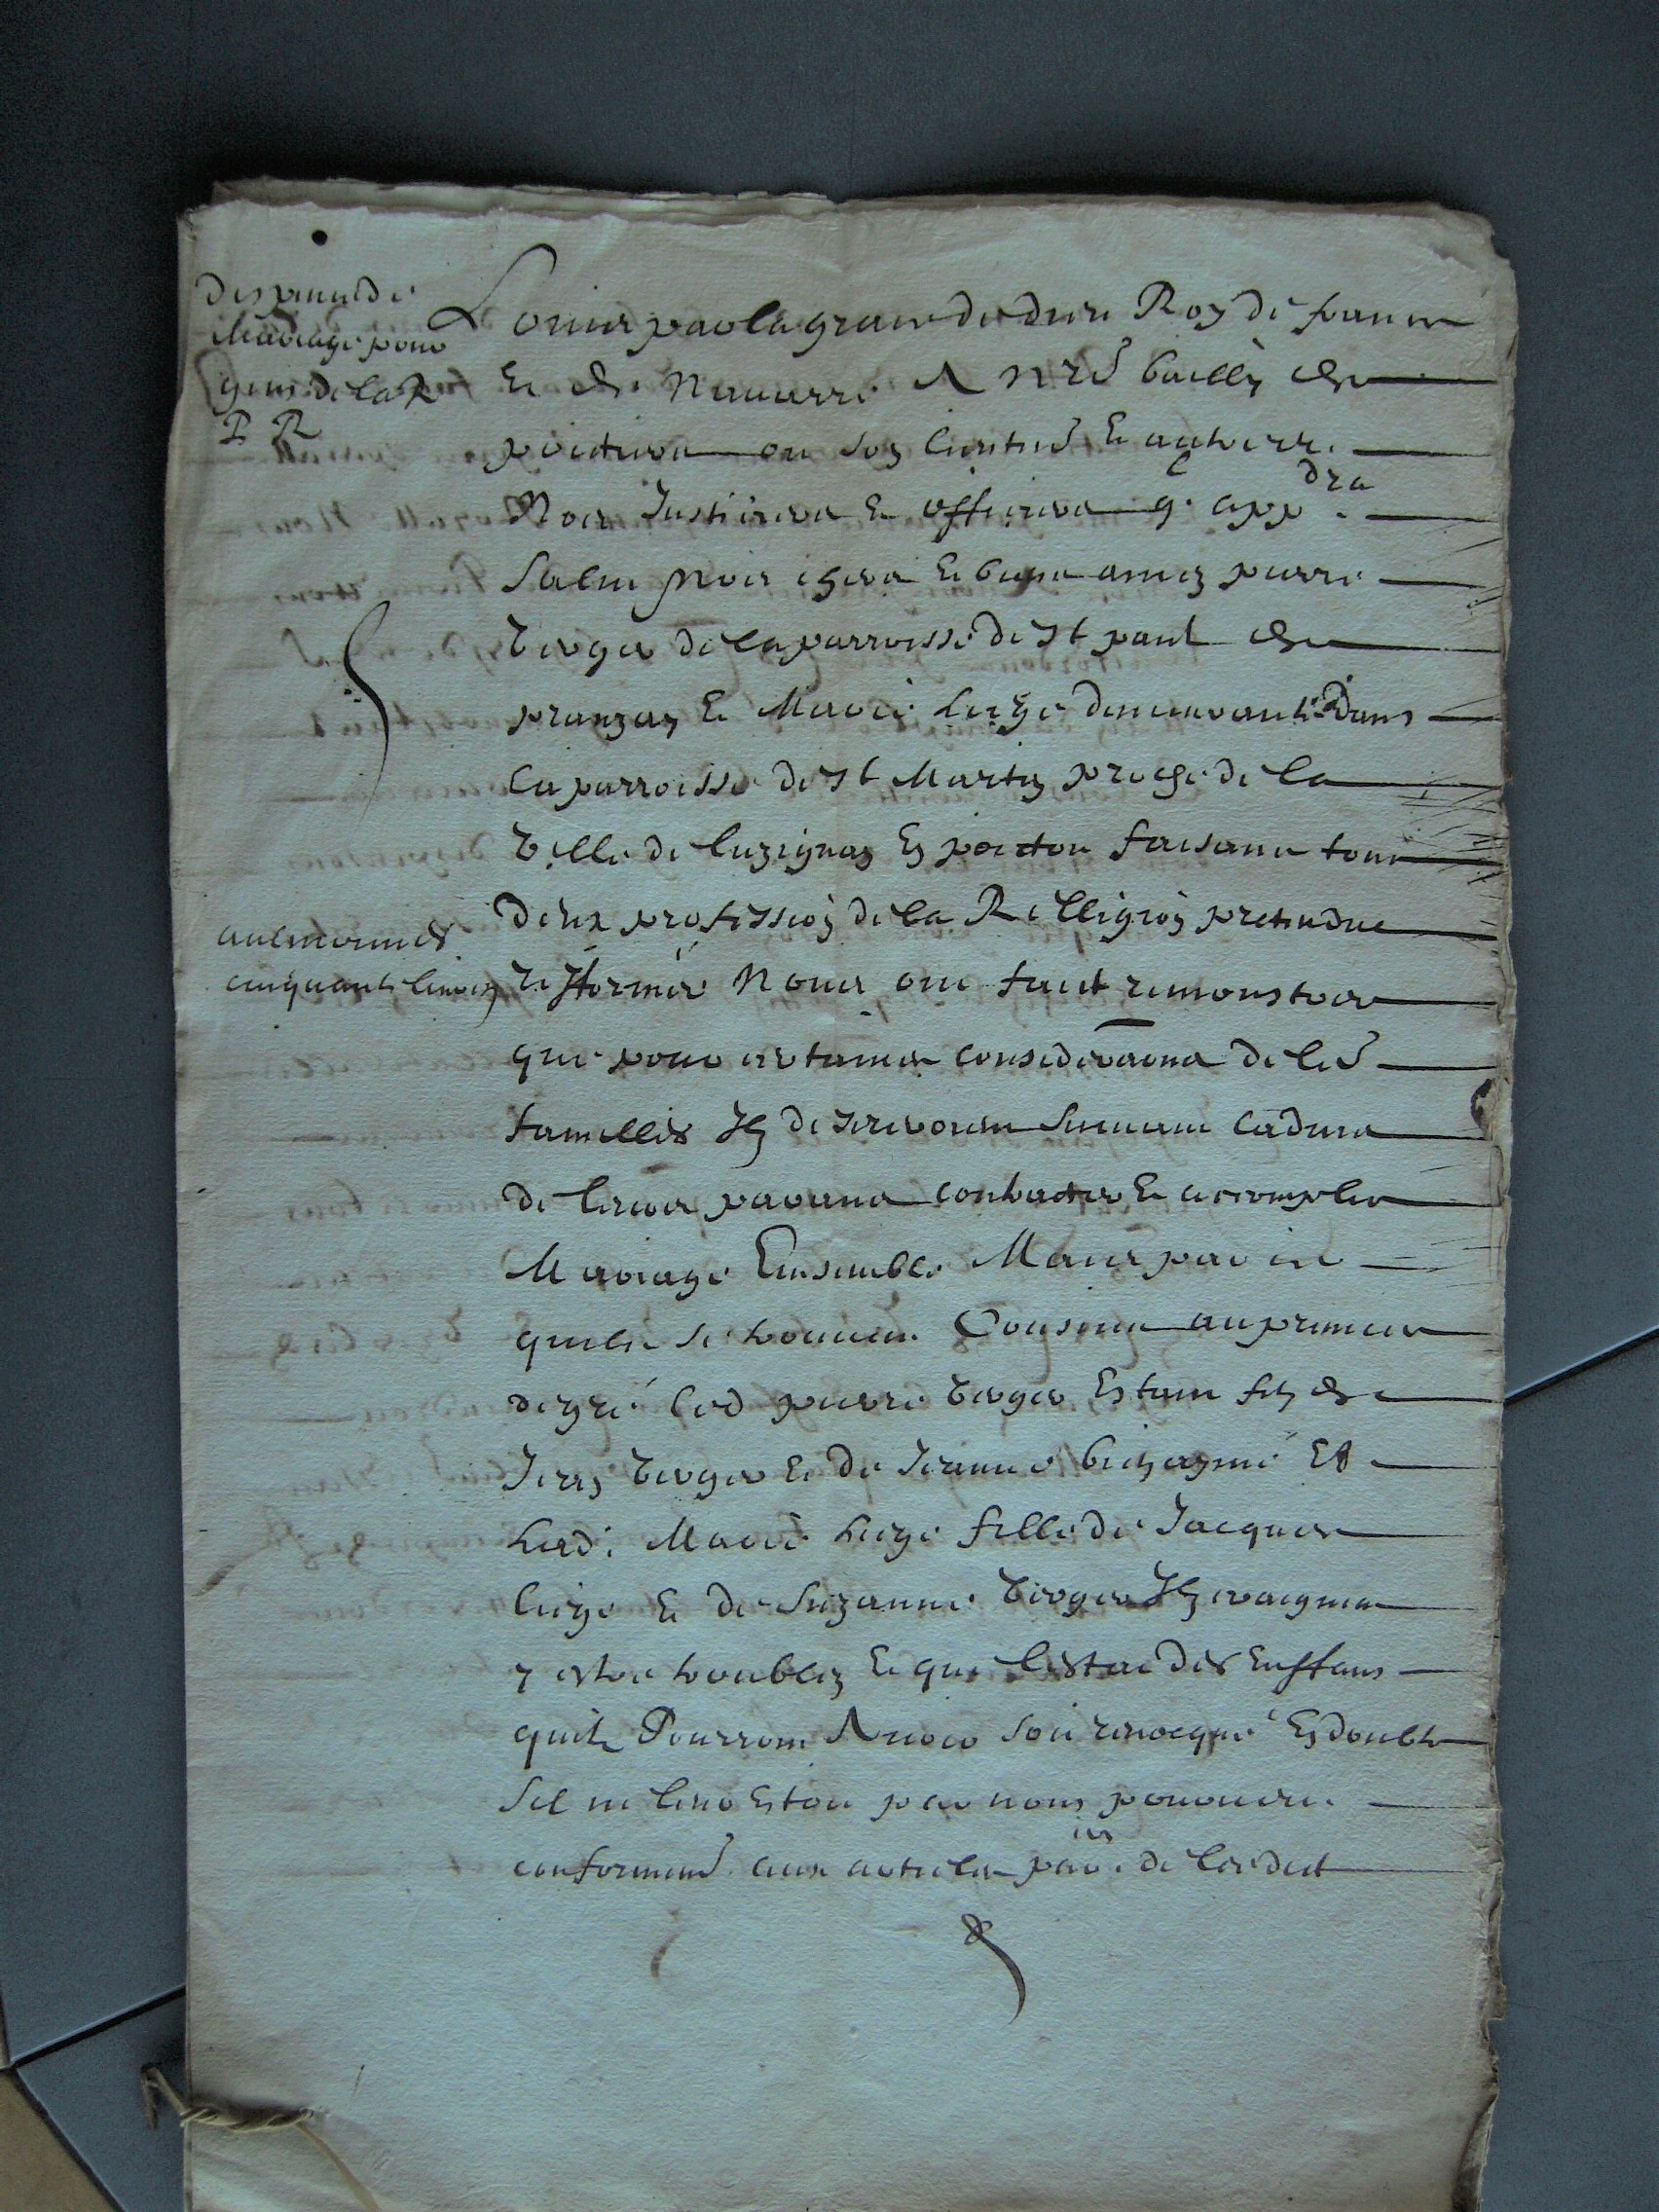 dispence de
Mariage pour
gens de la R
P R
Louis par la grace de dieu Roy de france
Et de Navarre A nre bailly de
poictiers ou son lieuten^t Et autres
Nos Justiciers Et officiers q^l app^dra
Salut Nos chers Et bien amez pierre
Verger de la parroisse de St paul de
pranzay Et Marie Liege demeurante dans
la parroisse de St Martin proche de la
Ville de luzignan En poictou faisans tous
deux profession de la Relligion pretendue
aulmosnes
cinquante livres
refformée Nous ont faict remonstrer
que pour certaines considera͞ons de leurs
familles Ilz desireroient suivant ladvis
de leurs parans contracter Et accomplir
Mariage Ensemble Mais par ce
quils se trouvent Cousins au premier
degré led pierre Verger Estant filz de
Jean Verger Et de Jeanne Et
Lad. Marie Liege fille de Jacques
Liege Et de Suzanne Verger Ilz craignent
y estre troublez Et que lestat des Enffans
quilz Pourront Avoir soit revocqué En doubte
Sil ne leur Estoit par nous pourveu
conformem^t aux articles par^ers de lesdict